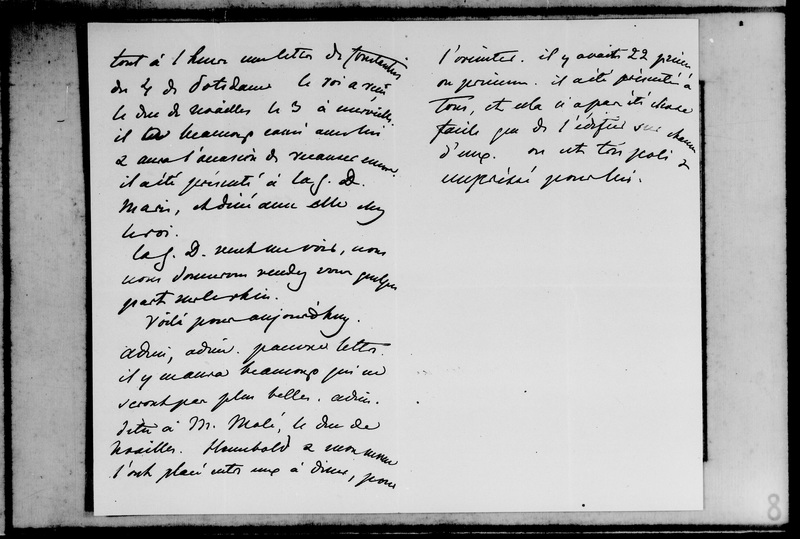 tout à l'heure une lettre de Constantin
du 4 de Potsdam le roi a reçu
le duc de Noailles le 3 à merveille
il a beaucoup causé avec lui
a aura l'occasion de recauser encore.
il a été présenté à la g. D.
Marie, et diné avec elle chez
le roi.
la g. D. veut me voir, nous
nous donnerons rendez vous quelque
part sur le rhin.
Voilà pour aujourd'huy.
adieu, adieu. pauvre lettre.
il y en aura beaucoup qui ne
seront pas plus belles. adieu.
dites à M. Molé, le duc de
Noailles. Humbold a mon neveu
l'ont placé entre eux à diner, pour
l'orienter. il y avait 22 princes
ou princesses. il a été présenté à
tous, et cela n'a pas été chose
facile que de l'édifier sur chacun
d'eux. on est très poli a
empressé pour lui.
8